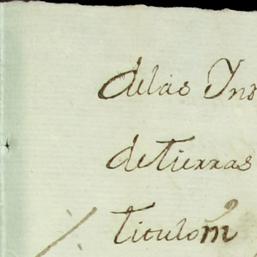 delas Ins
detierras
titulom